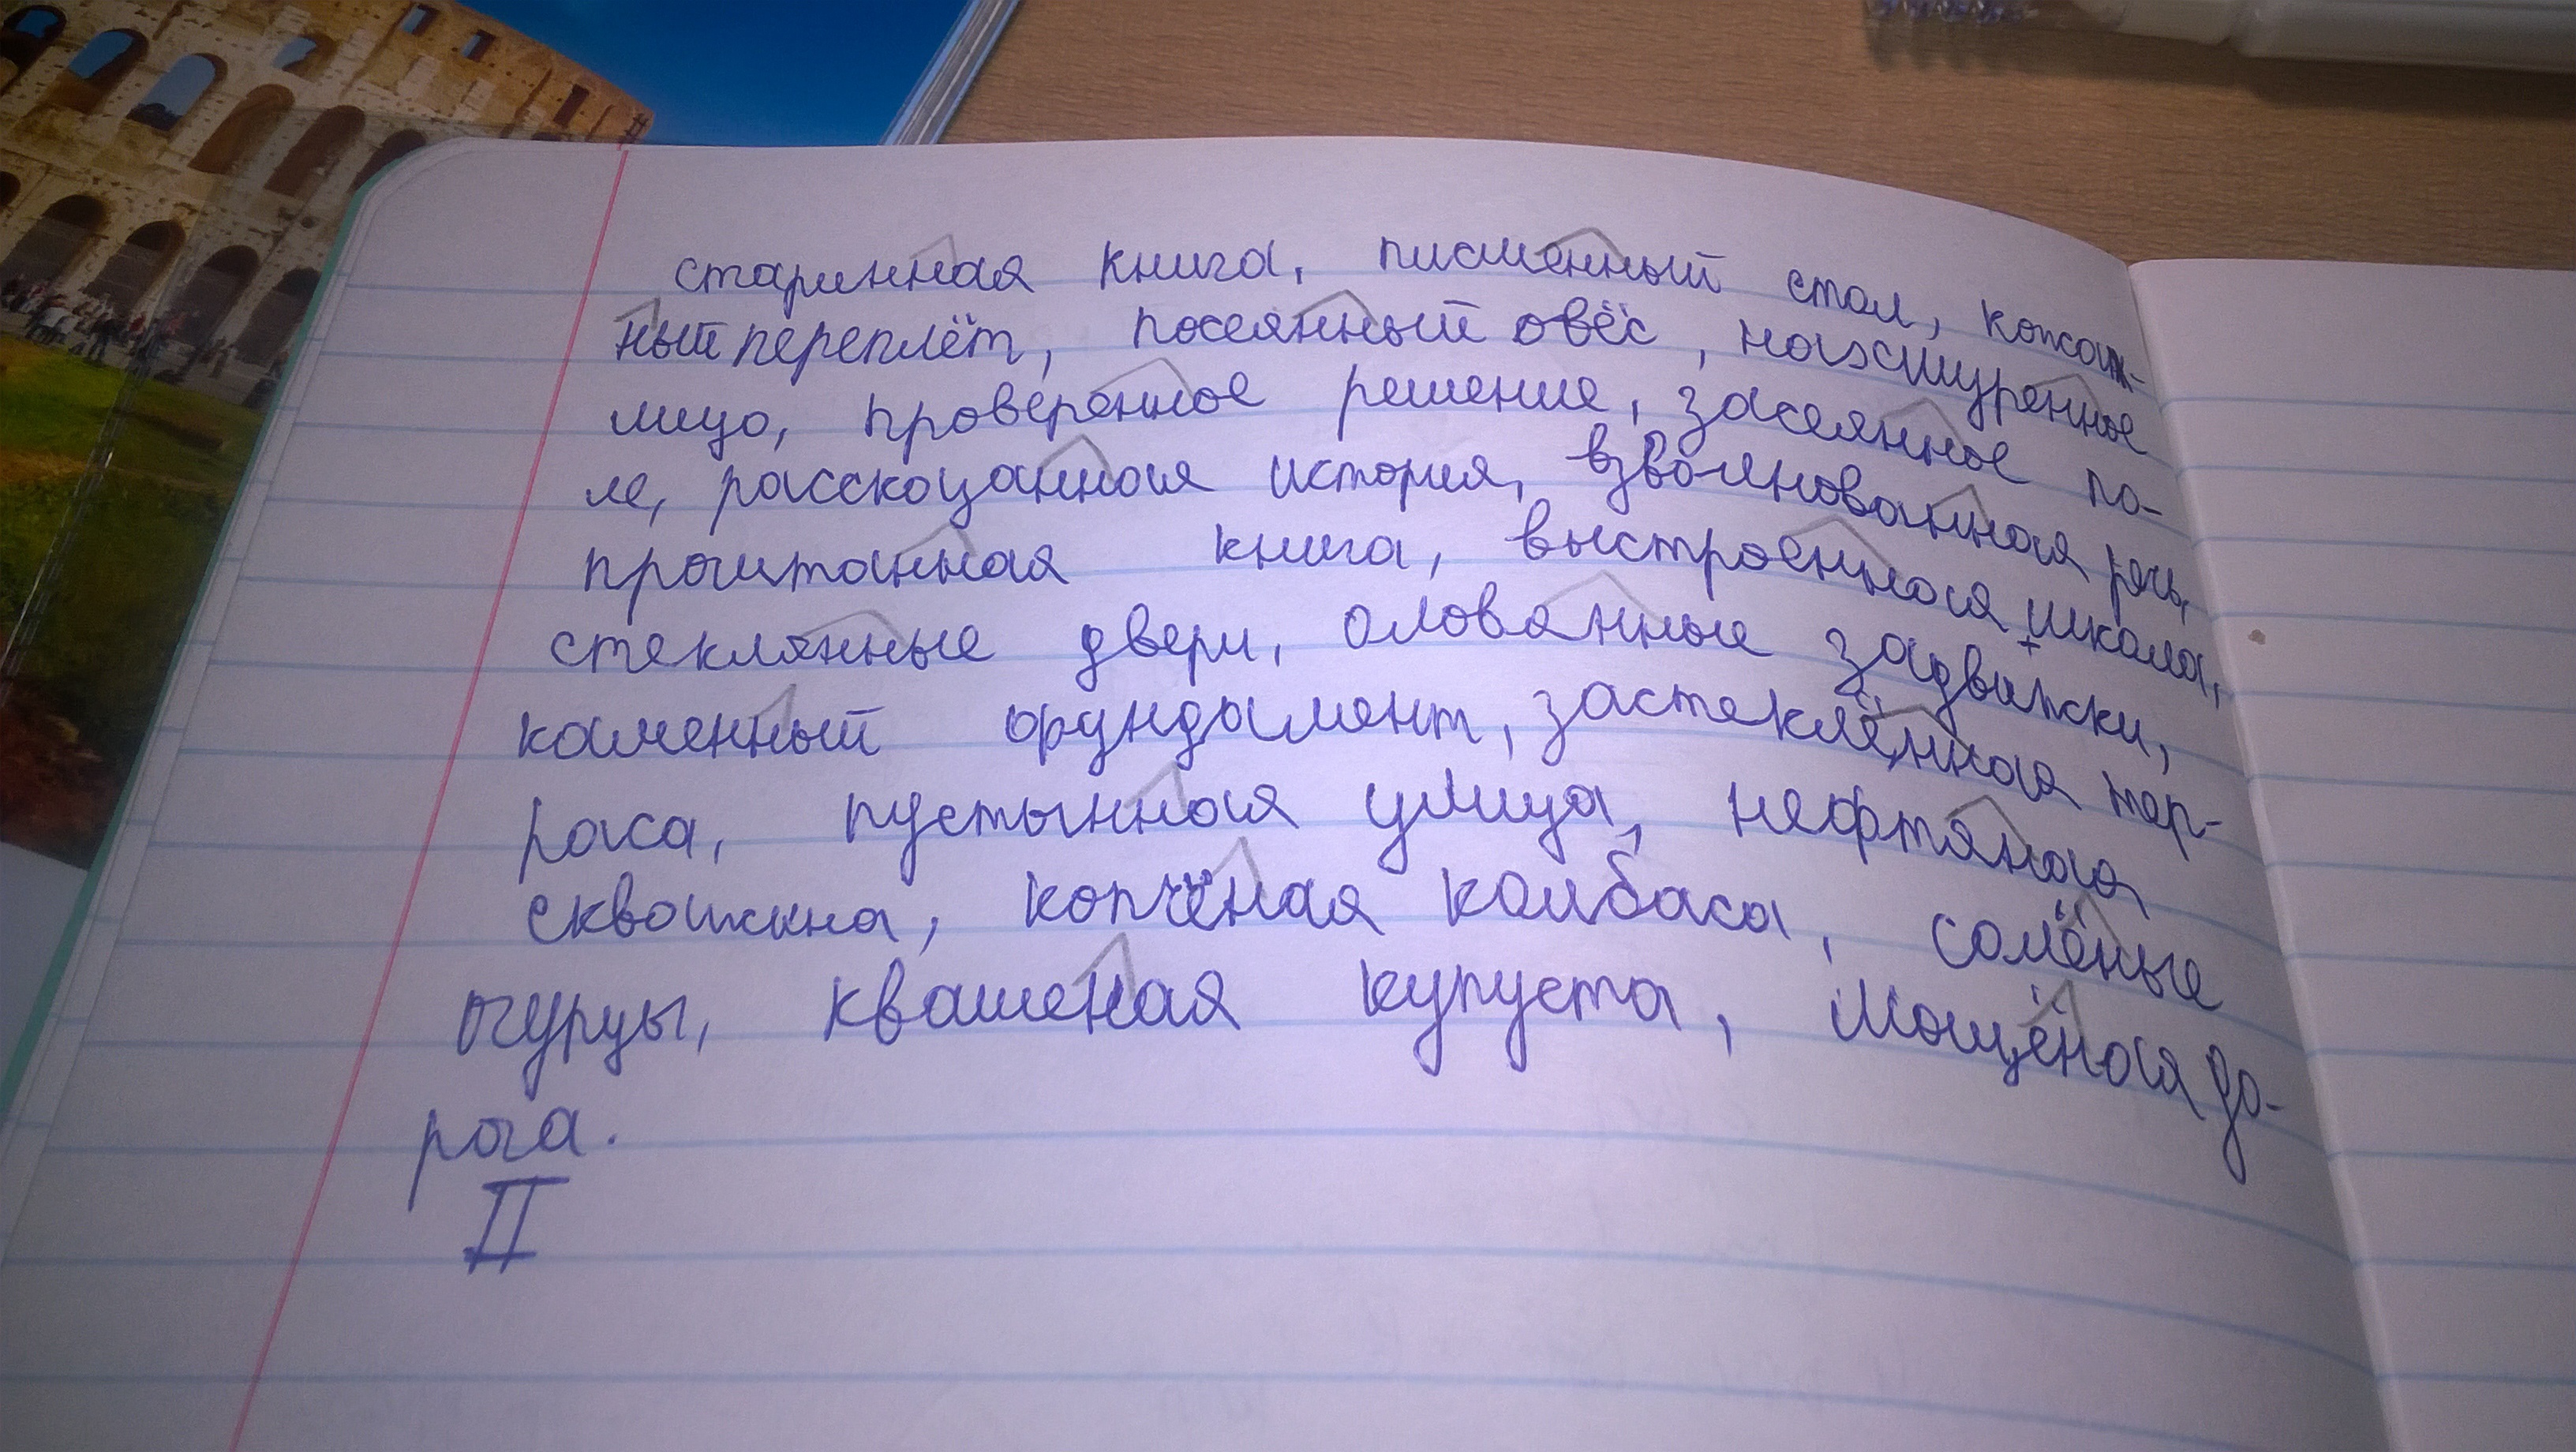 старинная книга, писменный стол, кожан-
ный переплёт, посеянный овёс, нахмуренное
лицо, проверенное решение, засеянное по-
ле, рассказанная история, взволнованная речь,
прочитанная книга, выстроенная школа,
стеклянные двери, оловянные задвижки,
каменный фундамент, застеклённая тер-
раса, пустынная улица, нефтяная
скважина, копчёная колбаса, солёные
огурцы, квашеная купуста, мощёная до-
рога.
II